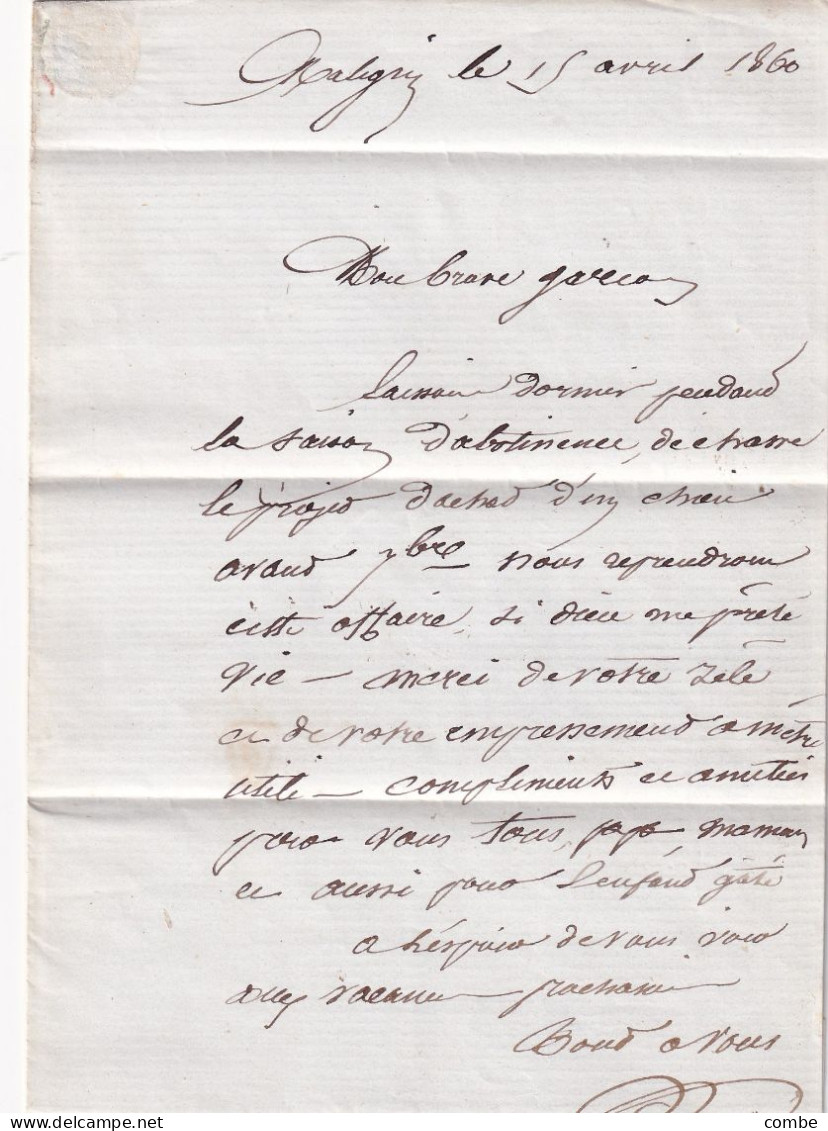 Maligny le 15 avril 1860
Mon brave garcon
Laisson dormir pendant
la saison d'abstinence, de chasse
le projet d'achat d'un chien
avant 7bre nous reprendrons
cette affaire, si dieu me prête
vie – merci de votre zèle
et de votre empressement a m'être
utile – compliments et amitiés
pour vous tous, papa, maman
et aussi pour l'enfant gâté
a l'espoir de vous voir
aux vacances prochaines
Tout a vous
www.delcampe.net
combe